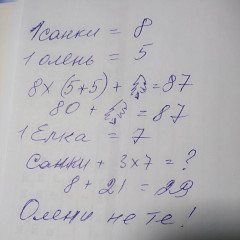 1 санки = 8
1 олень = 5
8 х (5+5) + 🌲 = 87
80 + 🌲 = 87
1 Ёлка = 7
Санки + 3х7 = ?
8 + 21 = 29
Олени не те!